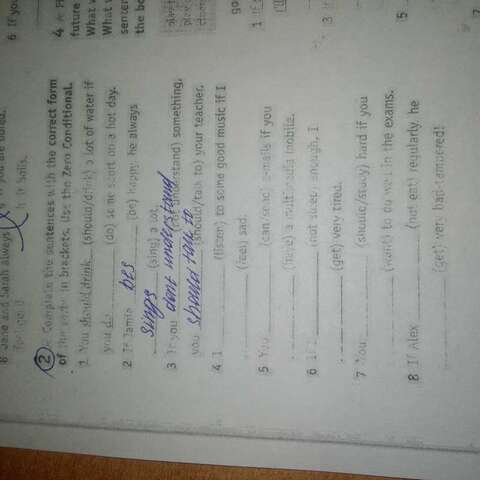 6 If you
4
future
What v
What v
senten
the bo
go
1 If
3 If
5
8 Jane and Sarah always
2 Complete the sentences with the correct form
of the verbs in brackets. Use the Zero Conditional.
1 You should drink (should/drink) a lot of water if
you do (do) some sport on a hot day.
2 If Jamie bes (be) happy, he always
sings (sing) a lot.
3 If you dont understand (not understand) something,
you should talk to (should/talk to) your teacher.
4 I (listen) to some good music if I
(feel) sad.
5 You (can/send) e-mails if you
(have) a multimedia mobile.
6 If I (not sleep) enough, I
(get) very tired.
7 You (should/study) hard if you
(want) to do well in the exams.
8 If Alex (not eat) regularly, he
(get) very bad-tempered!